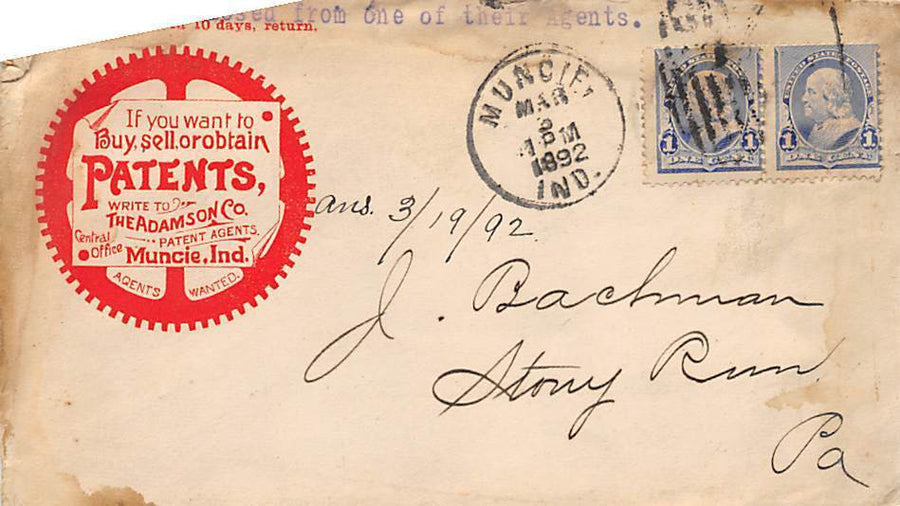 from one of their Agents.
10 days, return.
If you want to
Buy, sell, or obtain
PATENTS,
WRITE TO
THE ADAMSON CO.
PATENT AGENTS.
Central
Office
Muncie, Ind.
AGENTS
WANTED.
MUNCIE,
MAR
1892
IND.
UNITED STATES
1 1
ONE CENT
1 1
ONE CENT
ans. 3/19/92
J. Bachman
Stony Run
Pa